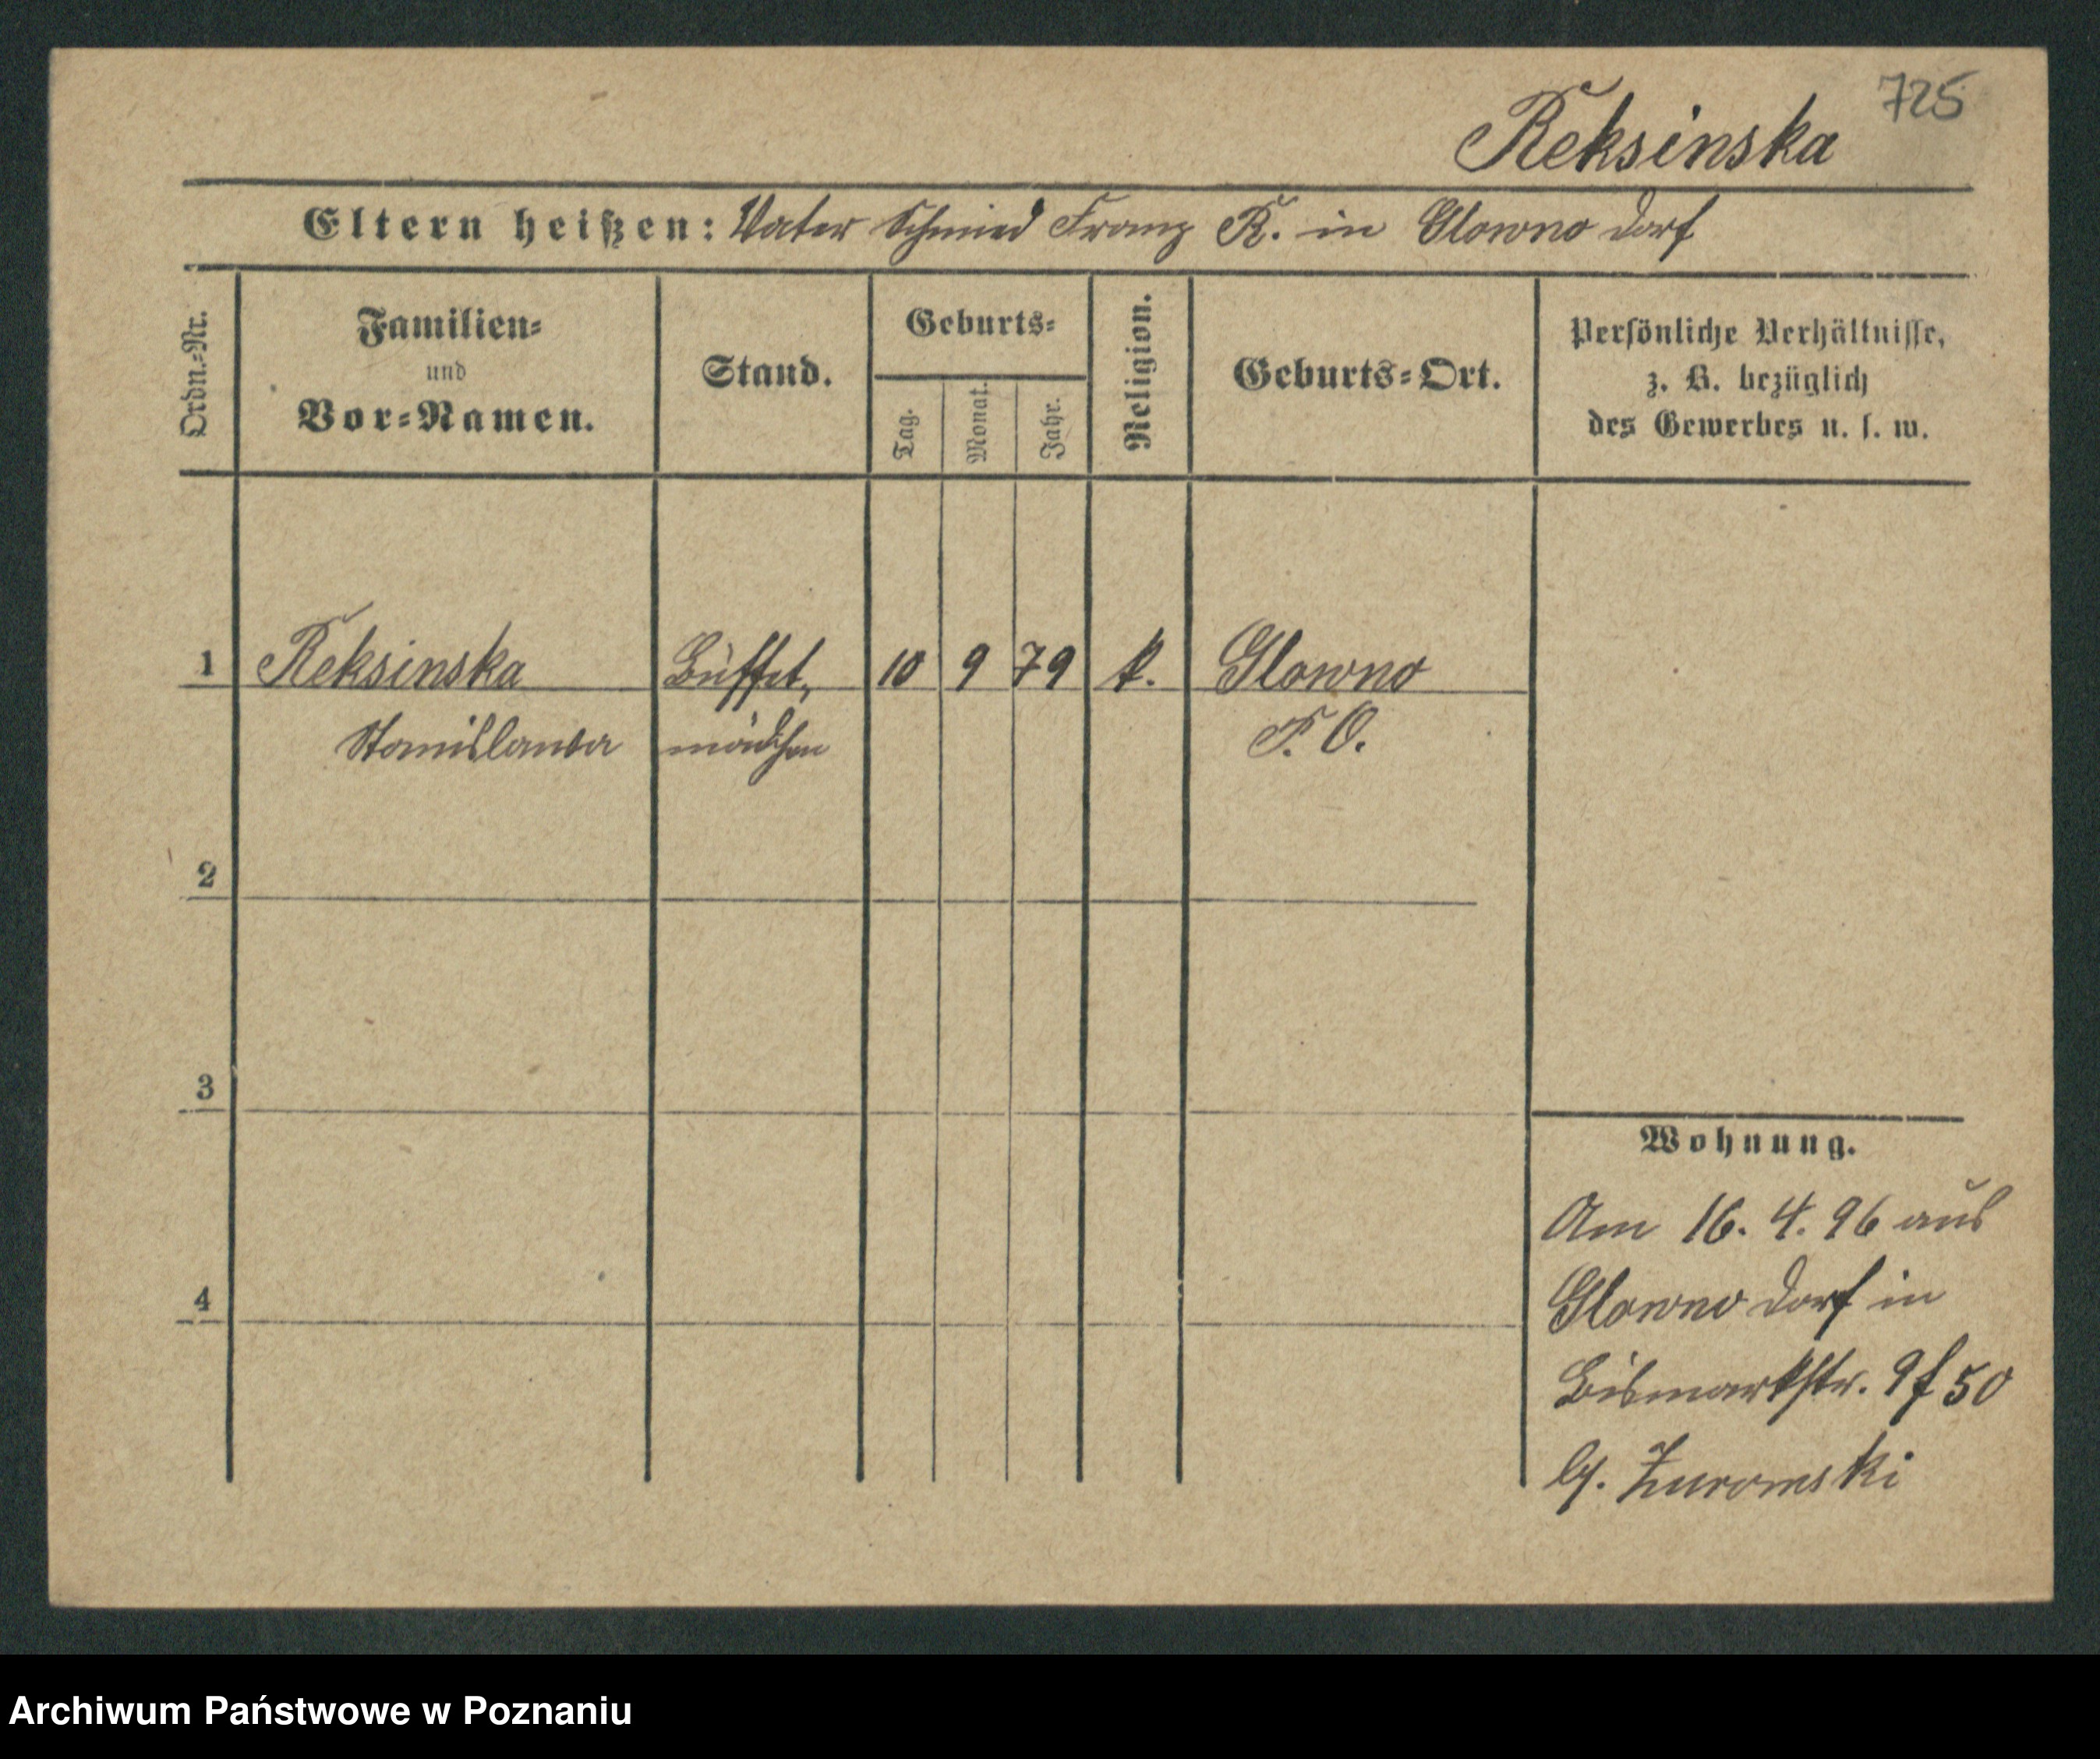 725
Reksinska
Eltern heißen: Vater Schmied Franz R. in Glowno Dorf
Ordn.-Nr.
Familien-
und
Vor-Namen.
Stand.
Geburts-
Tag.
Monat.
Jahr.
Religion.
Geburts-Ort.
Persönliche Verhältnisse,
z. B. bezüglich
des Gewerbes u. s. w.
1 Reksinska Büffet, 10 9 79 k. Glowno
Stanislawa mädchen P. O.
2
3
4
Wohnung.
Am 16. 4. 96 aus
Glowno Dorf in
Bismarkstr. 9
Zuromski
Archiwum Państwowe w Poznaniu